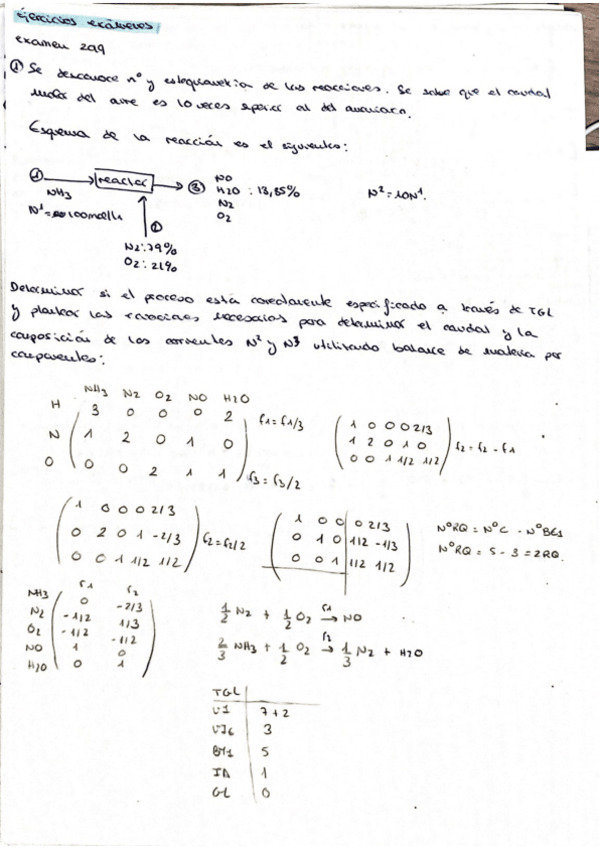 Ejercicios exámenes
examen 2019
① Se desconoce nº y estequiometría de las reacciones. Se sabe que el caudal
molar del aire es 10 veces superior al del amoniaco.
Esquema de la reacción es el siguiente:
① reactor ③ NO
NH3 H2O : 13,85% N²=10N¹.
N¹= 100mol/h N2
② O2
N2:79%
O2:21%
Determinar si el proceso está correctamente especificado a través de TGL
y plantear las necesarias para determinar el caudal y la
composición de las corrientes N² y N3 utilizando balance de materia por
componentes:
NH3 N2 O2 NO H2O
H 3 0 0 0 2 r1= r1/3
N 1 2 0 1 0
O 0 0 2 1 1 r3= r3/2
1 0 0 0 2/3
1 2 0 1 0 r2= r2 - r1
0 0 1 1/2 1/2
1 0 0 0 2/3
0 2 0 1 -2/3 r2= r2/2
0 0 1 1/2 1/2
1 0 0 0 2/3
0 1 0 1/2 -1/3
0 0 1 1/2 1/2
NºRQ = NºC - NºBE1
NºRQ = 5 - 3 = 2RQ.
r1 r2
NH3 0 -2/3
N2 -1/2 1/3
O2 -1/2 -1/2
NO 1 0
H2O 0 1
1/2 N2 + 1/2 O2 r1→ NO
2/3 NH3 + 1/2 O2 r2→ 1/3 N2 + H2O
TGL
7+2
3
5
1
GL 0